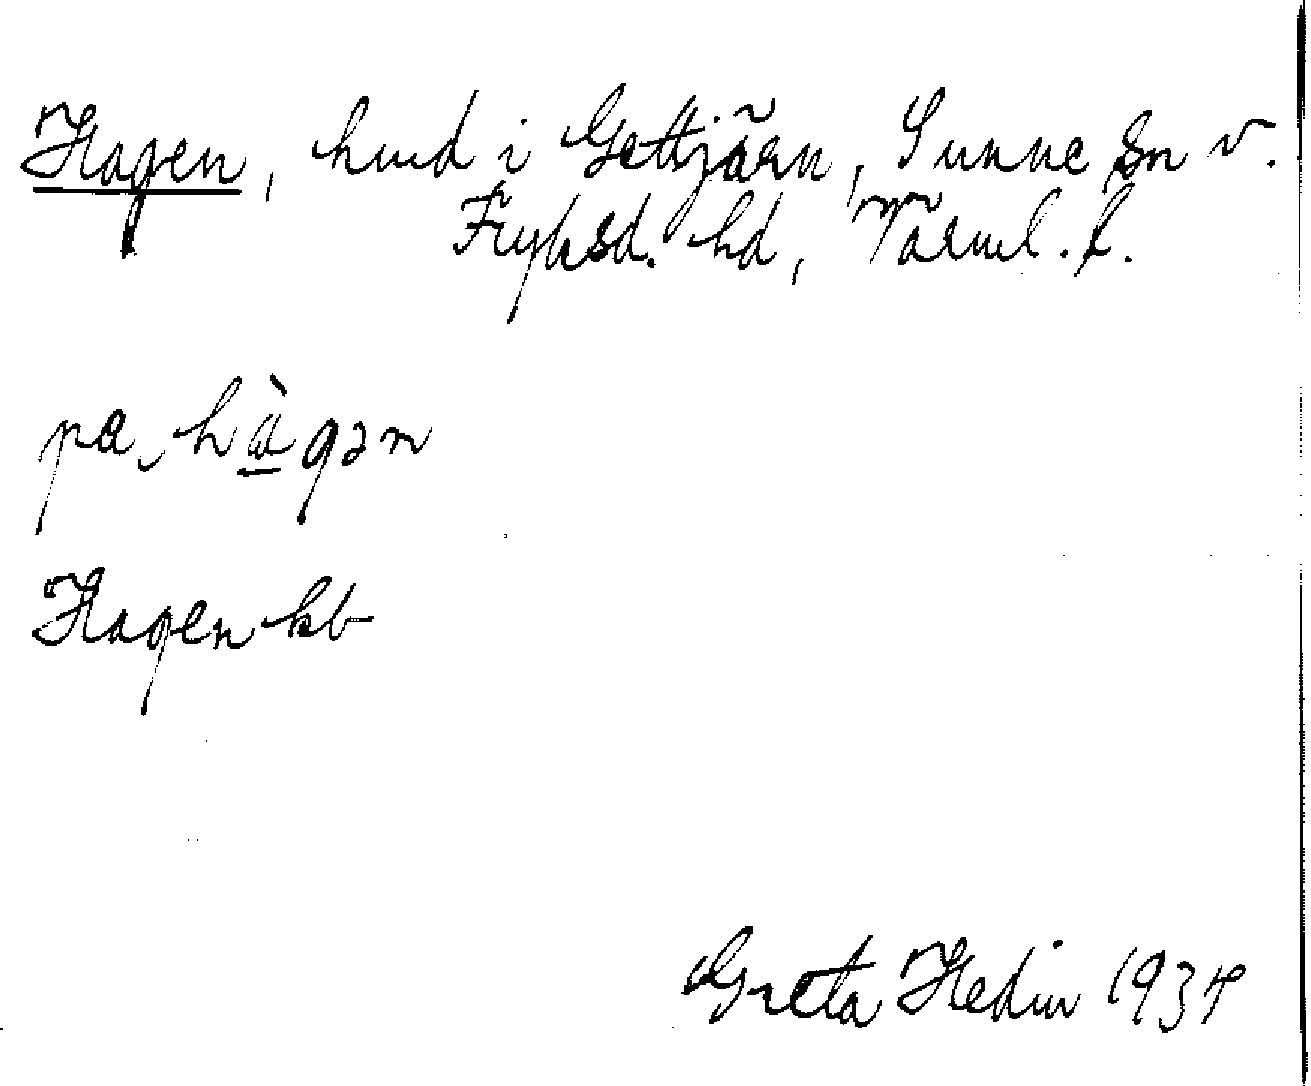 Hagen, hmd i Gettjärn, Sunne sn v.
Fryksd. hd, Värml. l.
pa hàgən
Hagen kb
Greta Hedin 1934